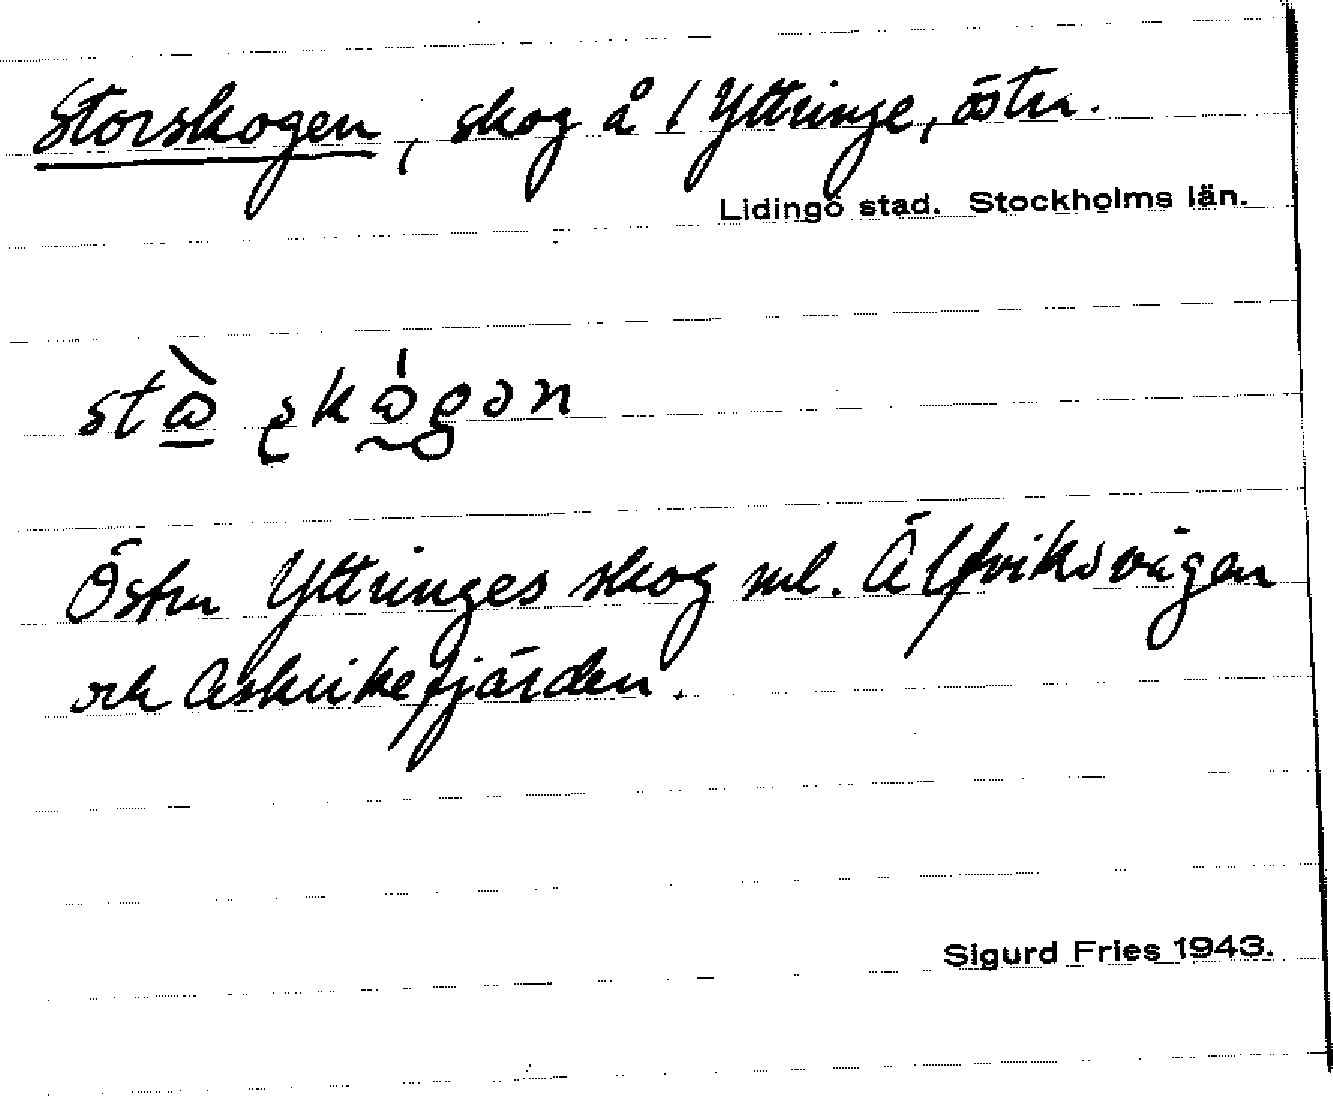 Storskogen, skog å 1 Yttringe, östra.
Lidingö stad. Stockholms län.
Östra Yttringes skog ml. Älfviksvägen
och Askrikefjärden.
Sigurd Fries 1943.